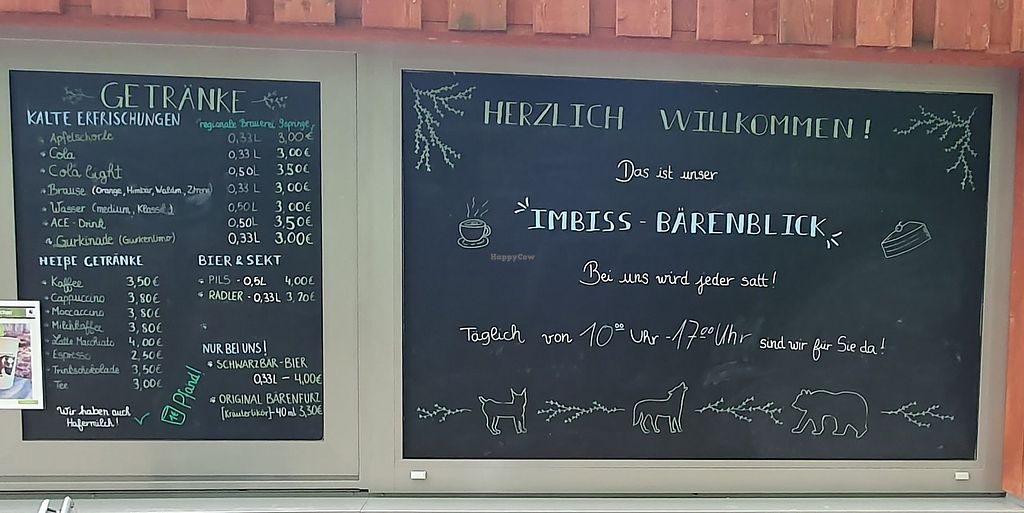 GETRÄNKE
KALTE ERFRISCHUNGEN
regionale Brauerei
Apfelschorle 0,33 L 3,00€
Cola 0,33 L 3,00€
Cola Light 0,50L 3,50€
Brause (Orange, Himbär, Waldm, Zitrone) 0,33 L 3,00€
Wasser (medium, Klassik) 0,50L 3,00€
ACE-Drink 0,50L 3,50€
Gurkinade (Gurkenlimo) 0,33L 3,00€
HEIßE GETRÄNKE
Kaffee 3,50€
Cappuccino 3,80€
Moccaccino 3,80€
Milchkaffee 3,80€
Latte Macchiato 4,00€
Espresso 2,50€
Trinkschokolade 3,50€
Tee 3,00€
Wir haben auch
Hafermilch!
Pfand!
BIER & SEKT
PILS - 0,5L 4,00€
RADLER - 0,33L 3,70€
NUR BEI UNS!
SCHWARZBÄR-BIER
0,33L - 4,00€
ORIGINAL BÄRENFURZ
[Kräuterlikör]-40ml 3,30€
HERZLICH WILLKOMMEN!
Das ist unser
IMBISS - BÄRENBLICK
Bei uns wird jeder satt!
Täglich von 10⁰⁰ Uhr - 17⁰⁰ Uhr sind wir für Sie da!
HappyCow